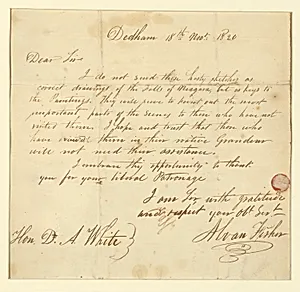 Dedham 18th Nov. 1820
Dear Sir
I do not send these hasty sketches as
correct drawings of the Falls of Niagara but as keys to
the Paintings. They will serve to point out the most
important parts of the scenes to those who have not
visited them. I hope and trust that those who
have viewed them in their native Grandeur
will not need their assistance.
I embrace this opportunity to thank
you for your liberal Patronage
I am Sir with gratitude
and respect your Obt Servt
Alvan Fisher
Hon. D. A. White